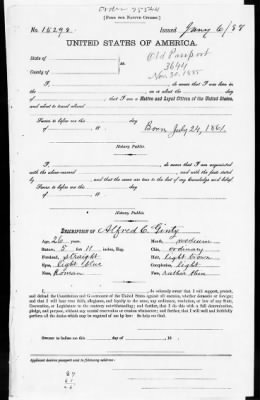 [FORM FOR NATIVE CITIZEN.]
No. 15298. Issued Jany 6/88
UNITED STATES OF AMERICA.
State of
Old Passport
County of
3644
Nov. 30. 1885
I, do swear that I was born in the
on or about the day
of , that I am a Native and Loyal Citizen of the United States,
and about to travel abroad.
Sworn to before me this day
of 18
Born July 24, 1861.
Notary Public.
I, do swear that I am acquainted
with the above-named and with the facts stated
by and that the same are true to the best of my knowledge and belief.
Sworn to before me this day
of 18
Notary Public.
DESCRIPTION OF Alfred C. Ginty
Age, 26 years. Mouth, medium
Stature, 5 feet 11 inches, Eng. Chin, ordinary
Forehead, straight Hair, light brown
Eyes, light blue Complexion, light
Nose, Roman Face, rather thin
I, do solemnly swear that I will support, protect,
and defend the Constitution and Government of the United States against all enemies, whether domestic or foreign;
and that I will bear true faith, allegiance, and loyalty to the same, any ordinance, resolution, or law of any State,
Convention, or Legislature to the contrary notwithstanding; and further, that I do this with a full determination,
pledge, and purpose, without any mental reservation or evasion whatsoever; and further, that I will well and faithfully
perform all the duties which may be required of me by law: So help me God.
Sworn to before me this day of , 18
Applicant desires passport sent to following address:
87
61
26